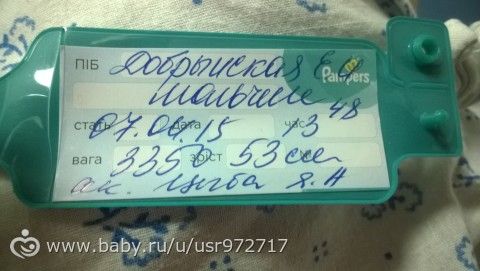 ПІБ Добрынская Е.
Pampers
мальчик
стать дата час
07.06.15 13 48
вага 3350 зріст 53 см
ак. Цыба Я.Н
www.baby.ru/u/usr972717